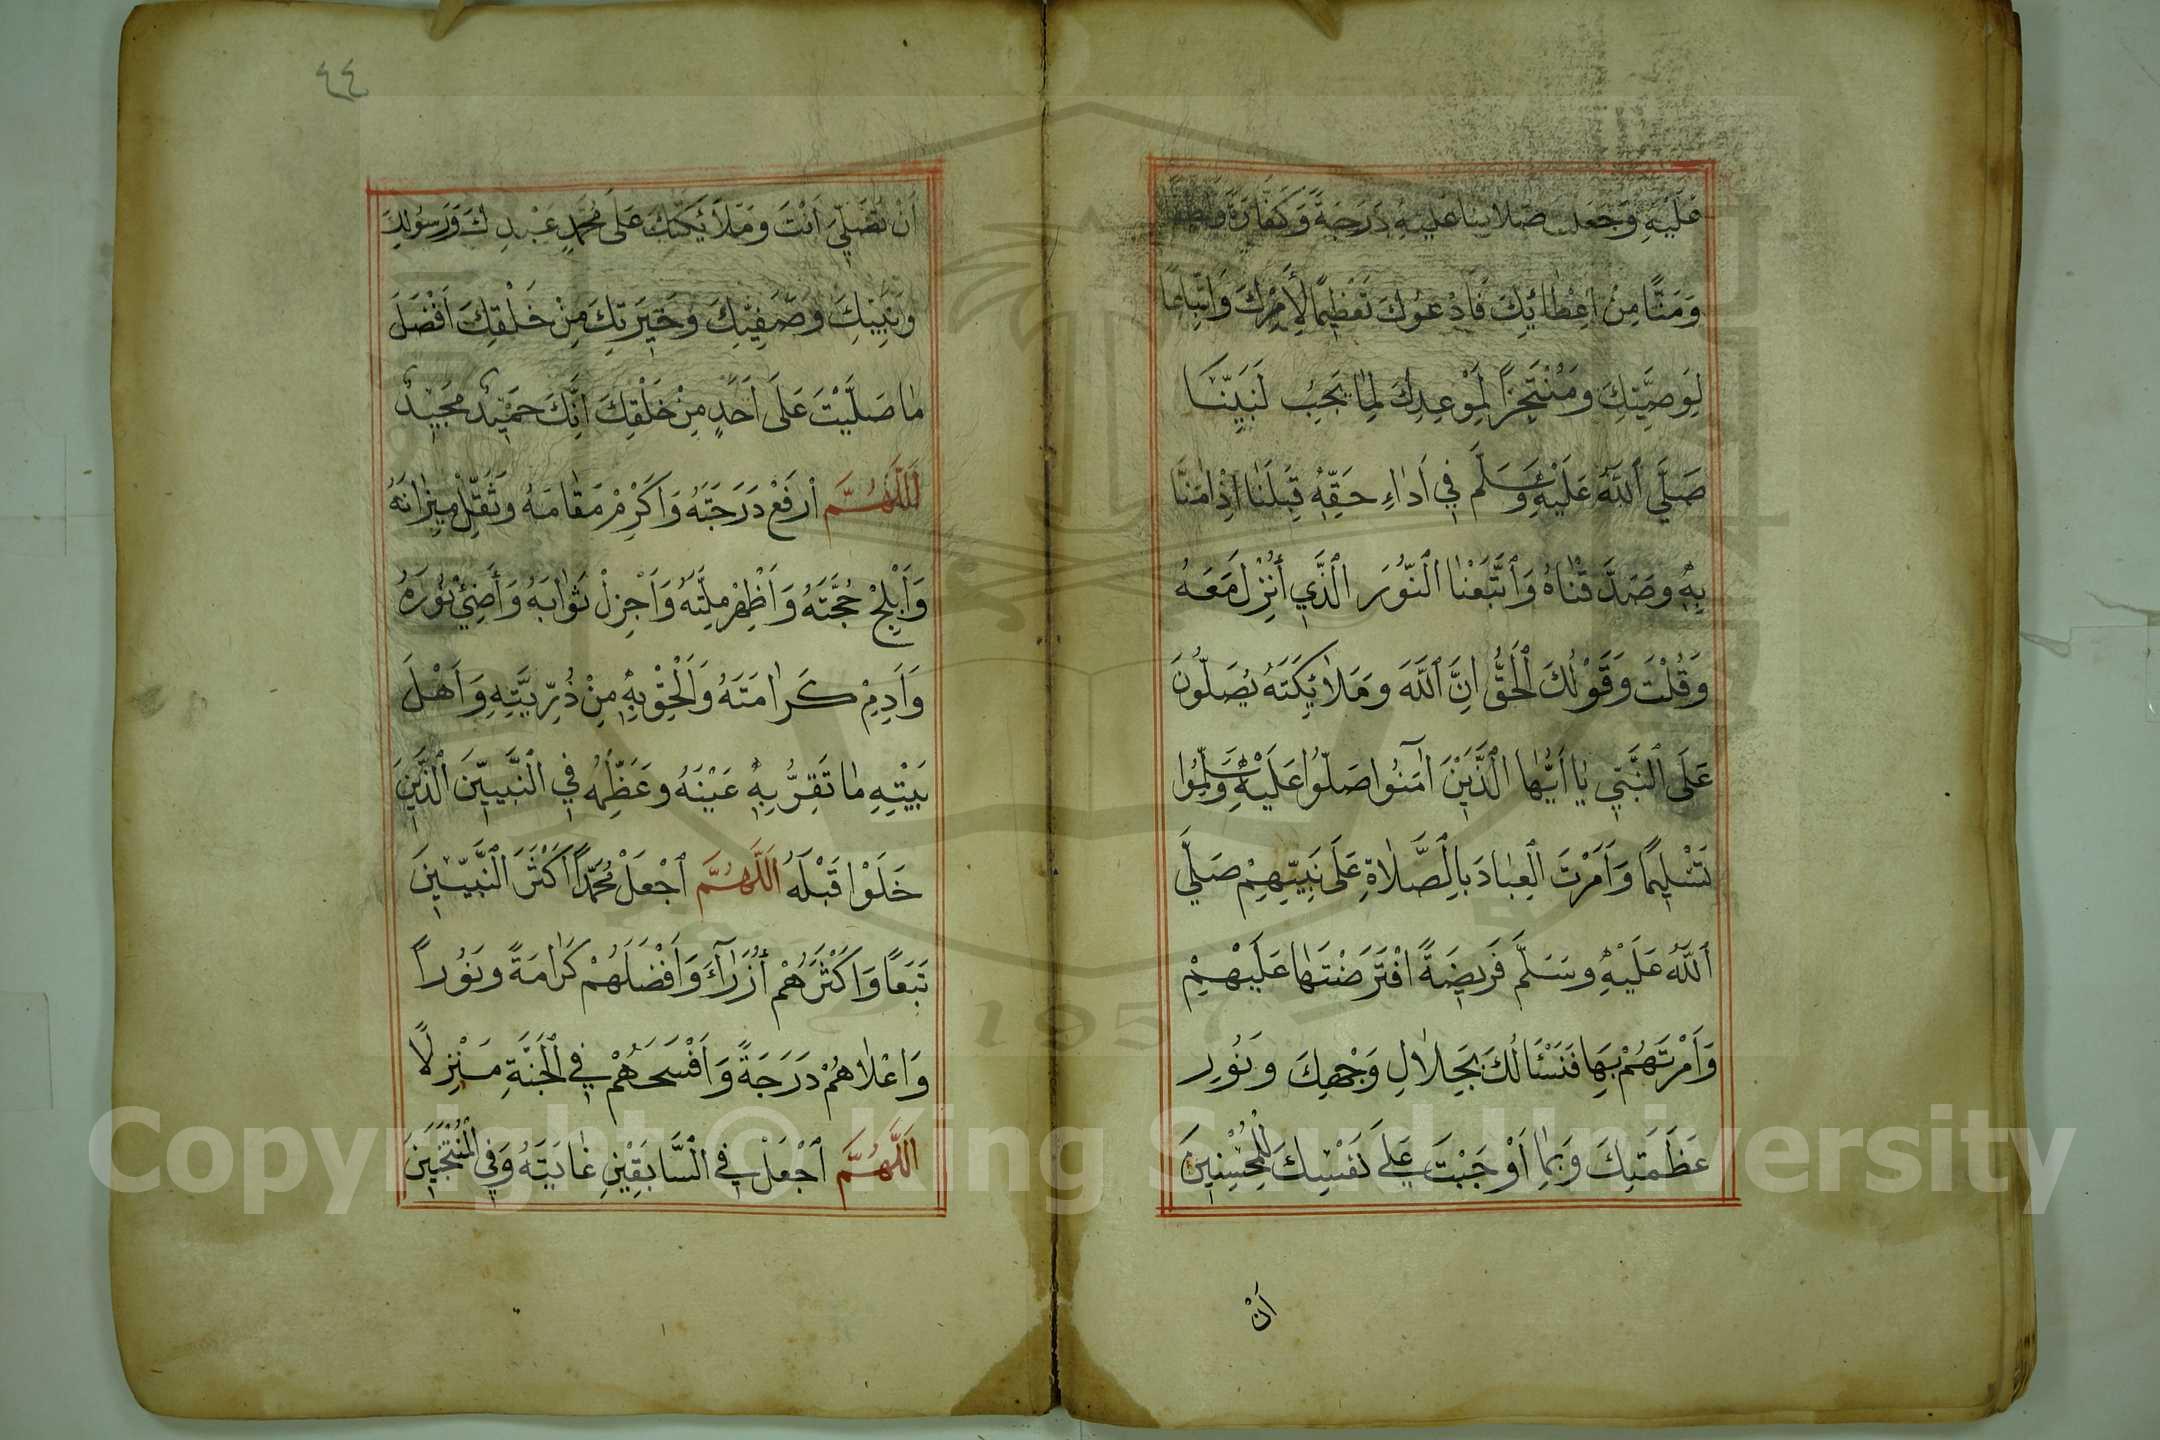 عَلَيْهِ وَجَعَلْتَ صَلَاتَنَا عَلَيْهِ دَرَجَةً وَكَفَّارَةً
وَمَنًّا مِنْ اِعْطَائِكَ فَادْعُوكَ تَعْظِيمًا لِأَمْرِكَ وَاتِّبَاعًا
لِوَصِيَّتِكَ وَمُنْتَجِزًا لِمَوْعِدِكَ لِمَا يَجِبُ لِنَبِيِّنَا
صَلَّى اللهُ عَلَيْهِ وَسَلَّمَ فِي اَدَاءِ حَقِّهِ قِبَلَنَا اِذْ اٰمَنَّا
بِهٖ وَصَدَّقْنَاهُ وَاتَّبَعْنَا النُّورَ الَّذِي أُنْزِلَ مَعَهُ
وَقُلْتَ وَقَوْلُكَ الْحَقُّ اِنَّ اللهَ وَمَلَائِكَتَهُ يُصَلُّونَ
عَلَى النَّبِيِّ يَا اَيُّهَا الَّذِيْنَ اٰمَنُوا صَلُّوا عَلَيْهِ وَسَلِّمُوا
تَسْلِيمًا وَاَمَرْتَ الْعِبَادَ بِالصَّلَاةِ عَلَى نَبِيِّهِمْ صَلَّى
اللهُ عَلَيْهِ وَسَلَّمَ فَرِيضَةً افْتَرَضْتَهَا عَلَيْهِمْ
وَاَمَرْتَهُمْ بِهَا فَنَسْئَالُكَ بِجَلَالِ وَجْهِكَ وَنُورِ
عَظَمَتِكَ وَبِمَا اَوْجَبْتَ عَلَى نَفْسِكَ لِلْمُحْسِنِينَ
اَنْ
٤٤
اَنْ تُصَلِّيَ اَنْتَ وَمَلَائِكَتُكَ عَلَى مُحَمَّدٍ عَبْدِكَ وَرَسُولِكَ
وَنَبِيِّكَ وَصَفِيِّكَ وَخِيَرَتِكَ مِنْ خَلْقِكَ اَفْضَلَ
مَا صَلَّيْتَ عَلَى اَحَدٍ مِنْ خَلْقِكَ اِنَّكَ حَمِيْدٌ مَجِيْدٌ
اَللّٰهُمَّ ارْفَعْ دَرَجَتَهُ وَاَكْرِمْ مَقَامَهُ وَثَقِّلْ مِيزَانَهُ
وَاَبْلِجْ حُجَّتَهُ وَاَظْهِرْ مِلَّتَهُ وَاَجْزِلْ ثَوَابَهُ وَأَضِئْ نُورَهُ
وَاَدِمْ كَرَامَتَهُ وَاَلْحِقْ بِهٖ مِنْ ذُرِّيَّتِهِ وَاَهْلِ
بَيْتِهِ مَا تَقِرُّ بِهٖ عَيْنَهُ وَعَظِّمْهُ فِي النَّبِيِّينَ الَّذِينَ
خَلَوْا قَبْلَهُ اَللّٰهُمَّ اجْعَلْ مُحَمَّدًا اَكْثَرَ النَّبِيِّينَ
تَبَعًا وَاَكْثَرَهُمْ أُزَرَآءَ وَاَفْضَلَهُمْ كَرَامَةً وَنُورًا
وَاَعْلَاهُمْ دَرَجَةً وَاَفْسَحَهُمْ فِي الْجَنَّةِ مَنْزِلًا
اَللّٰهُمَّ اجْعَلْ فِي السَّابِقِيْنَ غَايَتَهُ وَفِي الْمُنْتَخَبِينَ
1957
Copyright © King Saud University